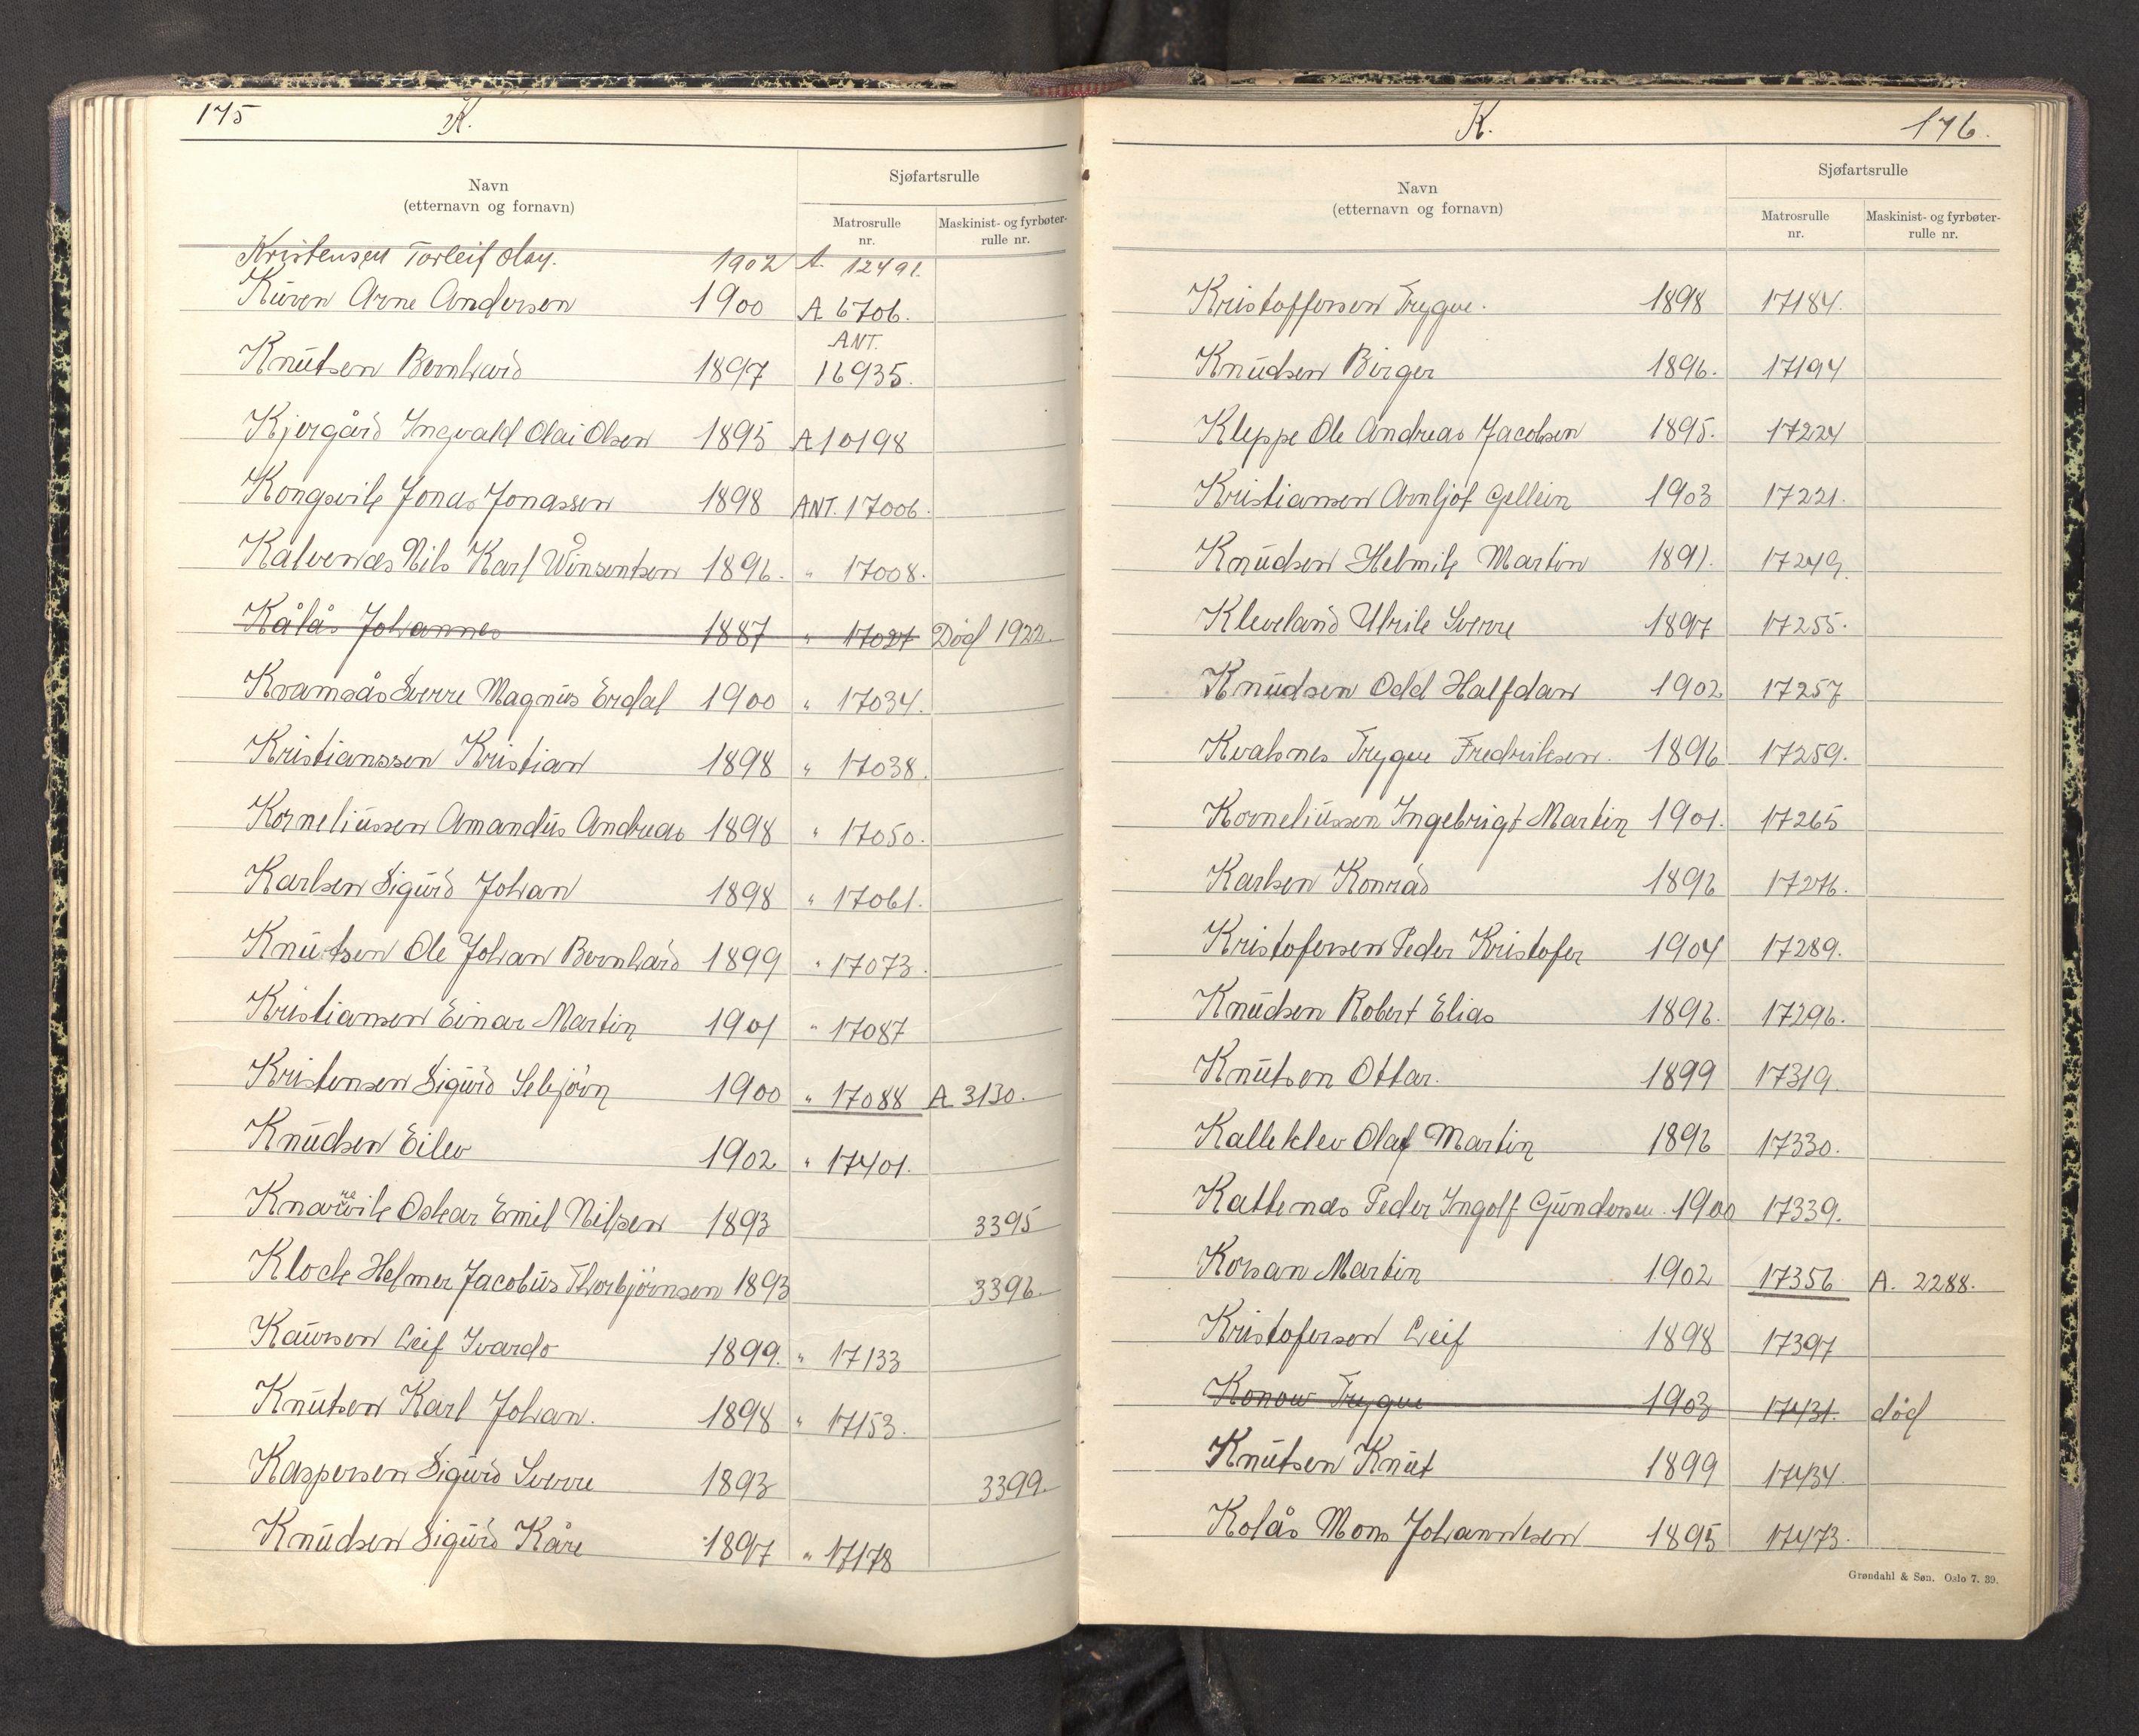 175 K.
Navn
(etternavn og fornavn)
Sjøfartsrulle
Matrosrulle nr.
Maskinist- og fyrbøter-rulle nr.
Kristensen Torleif Olay. 1902 A. 12491.
Küven Arne Andersen 1900 A 6706.
ANT.
Knütsen Bernhard 1897 16935.
Kjergård Ingvald Olai Olsen 1895 A 10198
Kongsvik Jonas Jonassen 1898 ANT. 17006.
Kalvenæs Nils Karl Winsentsen 1896. " 17008.
Kålås Johannes 1887 " 17027 Død 1922.
Kvamsås Sverre Magnüs Erdal 1900 " 17034.
Kristianssen Kristian 1898 " 17038.
Korneliüssen Amandüs Andreas 1898 " 17050.
Karlsen Sigürd Johan 1898 " 17061.
Knütsen Ole Johan Bernhard 1899 " 17073.
Kristiansen Einar Martin 1901 " 17087
Kristensen Sigürd Sebjörn 1900 " 17088 A 3130.
Knüdsen Eilev 1902 " 17401.
Knarrevik Oskar Emil Nilsen 1893 3395
Klock Helmer Jacobüs Thorbjörnsen 1893 3396.
Kaursen Leif Ivardo 1899. " 17133
Knütsen Karl Johan. 1898 " 17153.
Kaspersen Sigürd Sverre 1893 3399.
Knüdsen Sigürd Kåre 1897 " 17178
K. 176.
Navn
(etternavn og fornavn)
Sjøfartsrulle
Matrosrulle nr.
Maskinist- og fyrbøter-rulle nr.
Kristoffersen Trygve. 1898 17184.
Knüdsen Birger 1896. 17194
Kleppe Ole Andreas Jacobsen 1895. 17224
Kristiansen Arnljot Gellein 1903 17221.
Knüdsen Helmik Martin 1891. 17249.
Kleveland Ulrik Sverre 1897 17255.
Knüdsen Odd Halfdan 1902 17257
Kvalsnes Trygve Fredriksen. 1896 17259.
Korneliüssen Ingebrigt Martin 1901. 17265
Karlsen Konrad 1896 17276.
Kristofersen Peder Kristofer 1904 17289.
Knüdsen Robert Elias 1896. 17296.
Knütsen Ottar. 1899 17319.
Kalleklev Olaf Martin 1896 17330.
Kattenæs Peder Ingolf Gündersen. 1900 17339.
Korsan Martin 1902 17356 A. 2288.
Kristofersen Leif 1898 17397
Konow Trygve 1903 17431. død
Knütsen Knüt 1899 17434.
Kolås Mons Johannesen 1895 17473.
Grøndahl & Søn. Oslo 7. 39.